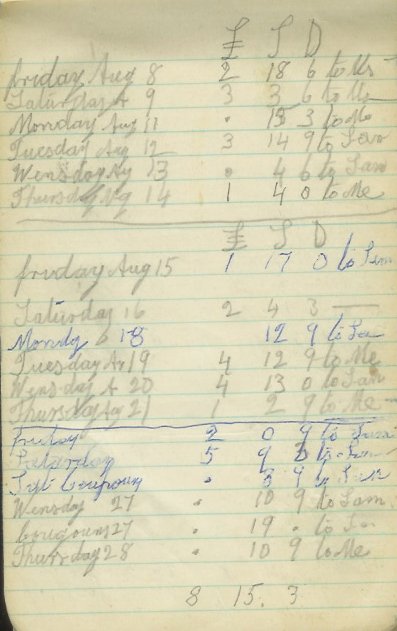 £ S D
friday Aug 8 2 18 6 to Me
Saturday A 9 3 3 6 to Me
Monday Aug 11 . 13 3 to Me
Tuesday Aug 12 3 14 9 to Sam
Wensday Ag 13 . 4 6 to Sam
Thursday Ag 14 1 4 0 to Me
£ S D
friday Aug 15 1 17 0 to Sam
Saturday 16 2 4 3 —
Mondy 18 12 9 to Sa
Tuesday Au 19 4 12 9 to Me
Wensday A 20 4 13 0 to Sam
Thursday Ag 21 1 2 9 to Me
Friday 2 0 9 to Sam
Saturday 5 9 to Sam
Coupons . 9 to Sam
Wensday 27 . 10 9 to Sam
Coupouns 27 . 19 . to Sa
Thursday 28 . 10 9 to Me
8 15. 3